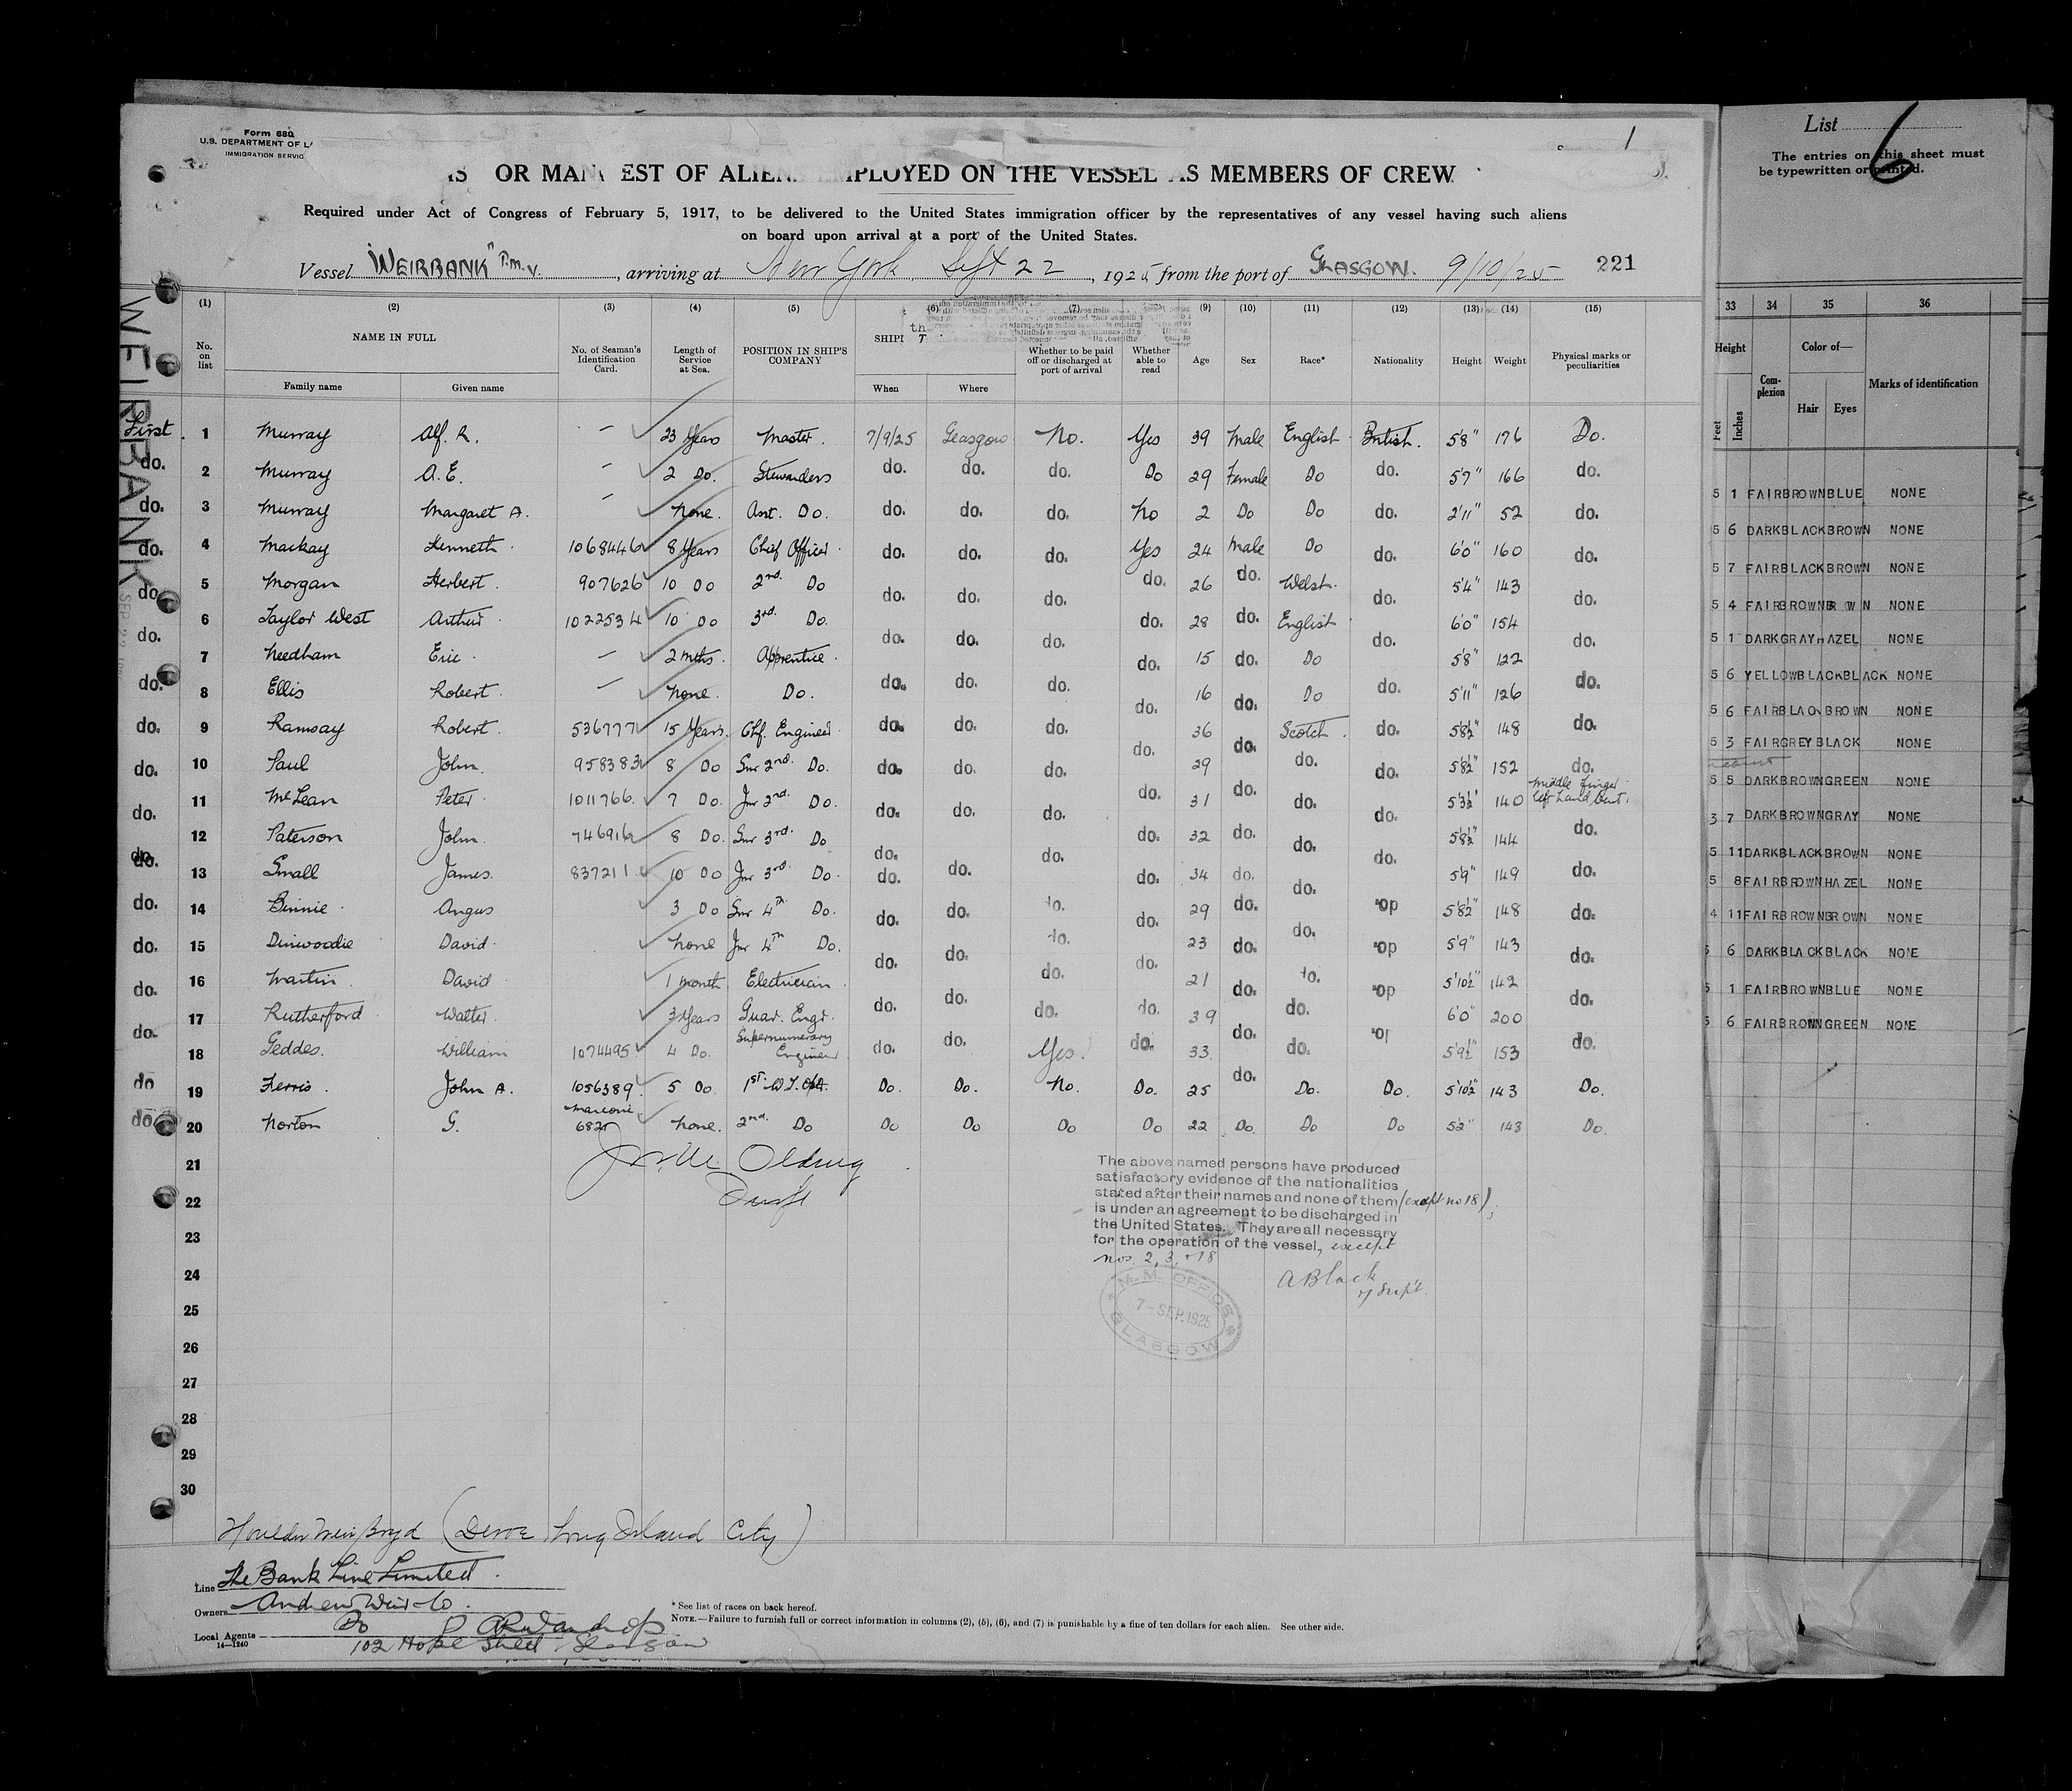 Form 680
U.S. DEPARTMENT OF L
IMMIGRATION SERVIC
1
IS OR MAN EST OF ALIENS EMPLOYED ON THE VESSEL AS MEMBERS OF CREW
Required under Act of Congress of February 5, 1917, to be delivered to the United States immigration officer by the representatives of any vessel having such aliens
on board upon arrival at a port of the United States.
Vessel "WEIRBANK" T.M.V., arriving at New York Sept 22, 1925 from the port of GLASGOW. 9/10/25 221
(1) (2) (3) (4) (5) (6) (7) (9) (10) (11) (12) (13) (14) (15)
No. on list NAME IN FULL Family name Given name No. of Seaman's Identification Card. Length of Service at Sea. POSITION IN SHIP'S COMPANY SHIPP When Where Whether to be paid off or discharged at port of arrival Whether able to read Age Sex Race* Nationality Height Weight Physical marks or peculiarities
First 1 Murray Alf. R. – 23 Years Master. 7/9/25 Glasgow No. Yes 39 Male English British. 5'8" 176 Do.
do. 2 Murray A. E. – 2 Do. Stewardess do. do. do. Do 29 Female Do do. 5'7" 166 do.
do. 3 Murray Margaret A. – None. Asst. Do. do. do. do. No 2 Do Do do. 2'11" 52 do.
do. 4 Mackay Kenneth 1068446 8 Years Chief Officer do. do. do. Yes 24 Male Do do. 6'0" 160 do.
do. 5 Morgan Herbert. 907626 10 Do 2nd. Do do. do. do. do. 26 do. Welsh. do. 5'4" 143 do.
do. 6 Taylor West Arthur 1022534 10 Do 3rd. Do. do. do. do. do. 28 do. English do. 6'0" 154 do.
do. 7 Needham Eric – 2 mths. Apprentice. do. do. do. do. 15 do. Do 5'8" 122 do.
do. 8 Ellis Robert – None. Do. do. do. do. do. 16 do. Do do. 5'11" 126 do.
do. 9 Ramsay Robert. 536777 15 Years. Chf. Engineer do. do. do. do. 36 do. Scotch. do. 5'8½" 148 do.
do. 10 Paul John. 958383 8 Do Snr 2nd. Do. do. do. do. do. 29 do. do. do. 5'8½" 152 do.
do. 11 McLean Peter 1011766. 7 Do. Jnr 2nd. Do. do. do. do. do. 31 do. do. do. 5'3½" 140 Middle finger left hand bent.
do. 12 Paterson John. 746916 8 Do. Snr 3rd. Do do. do. do. 32 do. do. do. 5'8½" 144 do.
do. 13 Small James. 837211 10 Do Jnr 3rd. Do. do. do. do. 34 do. do. 5'9" 149 do.
do. 14 Binnie Angus 3 Do Snr 4th Do. do. do. do. do. 29 do. do. do. 5'8½" 148 do.
do. 15 Dinwoodie David. None Jnr 4th Do. do. do. do. do. 23 do. do. 5'9" 143 do.
do. 16 Martin David 1 month Electrician. do. do. do. do. 21 do. do. do. 5'10½" 142 do.
do. 17 Rutherford Walter. 3 Years Guar. Engr. do. do. do. do. 39 do. do. 6'0" 200
18 Geddes. William 1074495 4 Do. Supernumerary Engineer do. do. Yes. do. 33. do. do. 5'9½" 153 do.
do 19 Ferris. John A. 1056389. 5 Do. 1st W.T. Opr. Do. Do. No. Do. 25 do. Do. Do. 5'10½" 143 Do.
do. 20 Norton G. Marconi 682 None. 2nd. Do Do Do Do Do 22 Do. Do Do 5'2" 143 Do.
21
22
23
24
25
26
27
28
29
30
The above named persons have produced
satisfactory evidence of the nationalities
stated after their names and none of them (except no 18),
is under an agreement to be discharged in
the United States. They are all necessary
for the operation of the vessel, except
nos. 2, 3, + 18
A Black
Supt.
M. M. OFFICE
7-SEP.1925
GLASGOW
Long Island City)
Line The Bank Line Limited.
Owners Andrew Weir & Co.
Local Agents Do
102 Hope Street Glasgow
14—1240
* See list of races on back hereof.
NOTE.—Failure to furnish full or correct information in columns (2), (5), (6), and (7) is punishable by a fine of ten dollars for each alien. See other side.
WEIRBANK
List 6
The entries on this sheet must
be typewritten or printed.
33 34 35 36
Height Feet Inches Complexion Color of— Hair Eyes Marks of identification
5 1 FAIR BROWN BLUE NONE
5 6 DARK BLACK BROWN NONE
5 7 FAIR BLACK BROWN NONE
5 4 FAIR BROWN BROWN NONE
5 1 DARK GRAY HAZEL NONE
5 6 YELLOW BLACK BLACK NONE
5 6 FAIR BLACK BROWN NONE
5 3 FAIR GREY BLACK NONE
5 5 DARK BROWN GREEN NONE
3 7 DARK BROWN GRAY NONE
5 11 DARK BLACK BROWN NONE
5 8 FAIR BROWN HAZEL NONE
4 11 FAIR BROWN BROWN NONE
5 6 DARK BLACK BLACK NONE
5 1 FAIR BROWN BLUE NONE
5 6 FAIR BROWN GREEN NONE